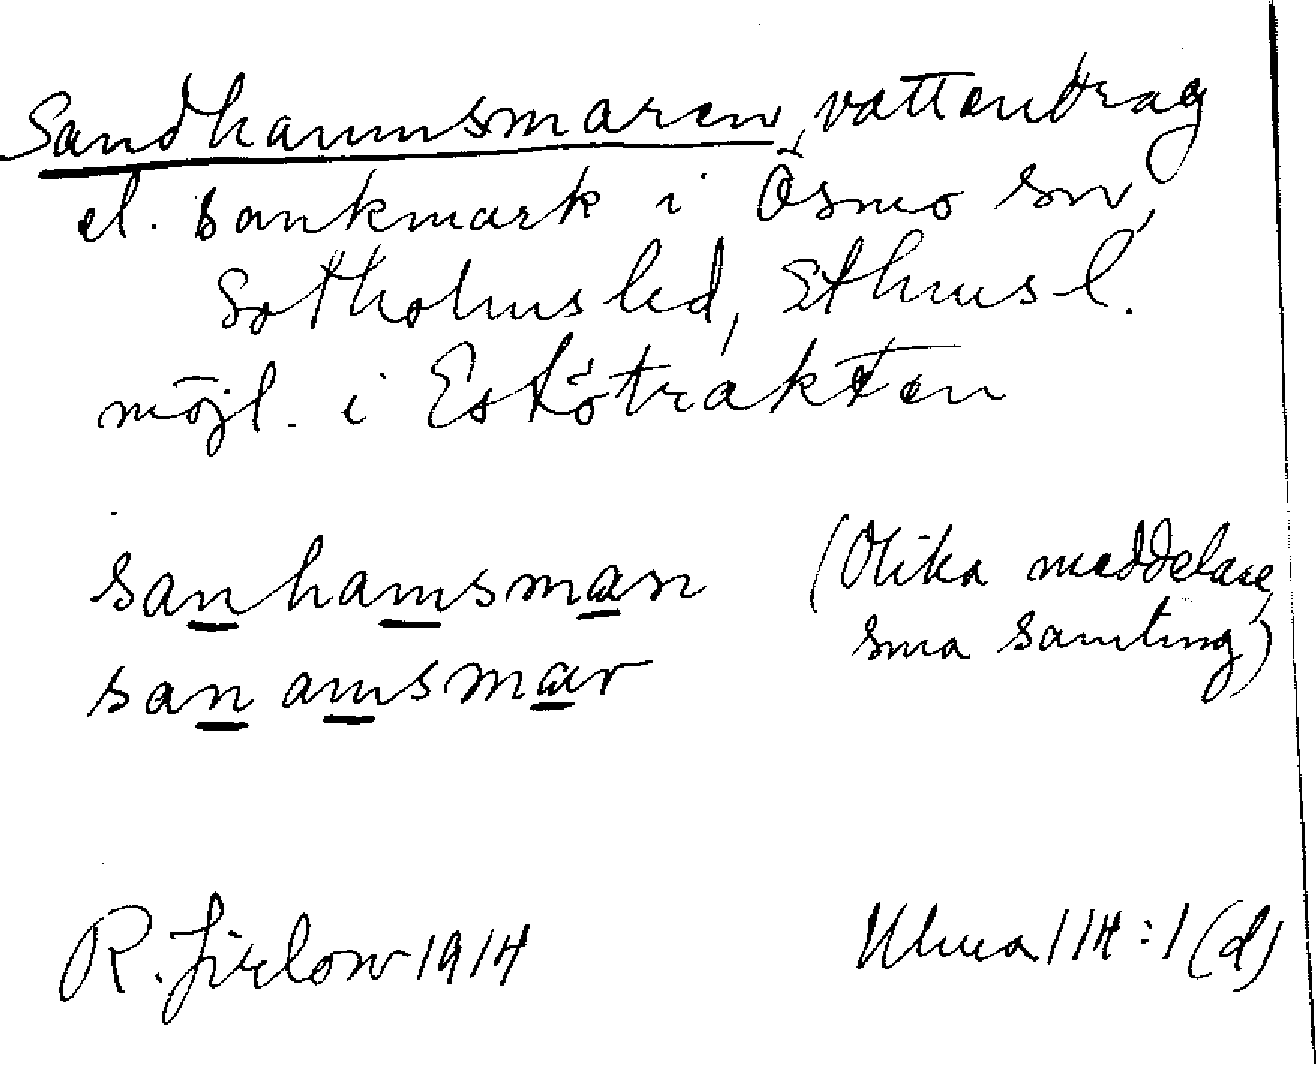 Sandhamnsmaren, vattendrag
el. sankmark i Ösmo sn,
Sotholms hd, Sthms l.
möjl. i Eskötrakten
sanhamsmaan (Olika meddelare
sanamsmaar samting)
R. Jirlow 1914 114:1 (d)